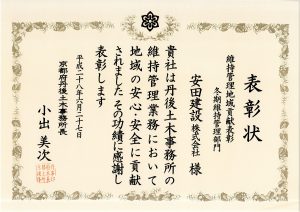 表彰状
維持管理地域貢献表彰
冬期維持管理部門
安田建設株式会社 様
貴社は丹後土木事務所の
維持管理業務において
地域の安心・安全に貢献
されました その功績に感謝し
表彰します
平成二十八年六月二十七日
京都府丹後土木事務所長
小出美次